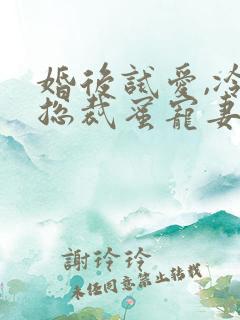 婚後試愛,冷
總裁蜜寵妻
謝玲玲
未經同意禁止轉載